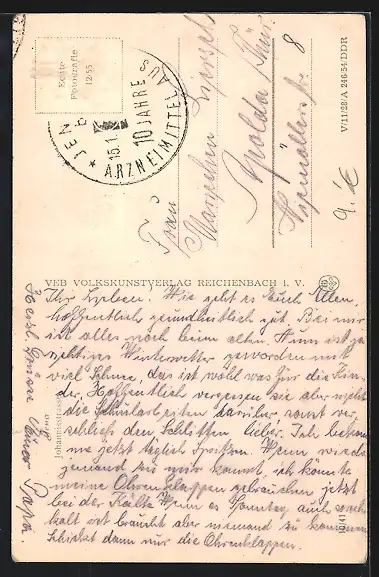 Echte
Fotografie
12×55
JENA
15.1.
10 JAHRE
ARZNEIMITTEL AUS
V/11/28/A 246/54/DDR
Frau
Margarethe
Apolda Thür.
8
9.- €
VEB VOLKSKUNSTVERLAG REICHENBACH I. V.
Ihr Lieben. Wie geht es Euch Allen,
hoffentlich gesundheitlich gut. Bei mir
ist alles noch beim alten. Nun ist ja
richtiges Winterwetter geworden mit
viel Schnee, das ist wohl was für die Kin
der. Hoffentlich vergessen sie aber nicht
die Schularbeiten darüber sonst ver
schließ den Schlitten lieber. Ich bekom
me jetzt täglich Spritzen. Wenn wieder
jemand zu mir kommt, ich könnte
meine Ohrenklappen gebrauchen jetzt
bei der Kälte. Wenn es Sonntag auch noch
kalt ist braucht aber niemand zu kommen
Schickt dann nur die Ohrenklappen.
Herzl. Grüsse Euer Papa
Jena
Johannisstrasse